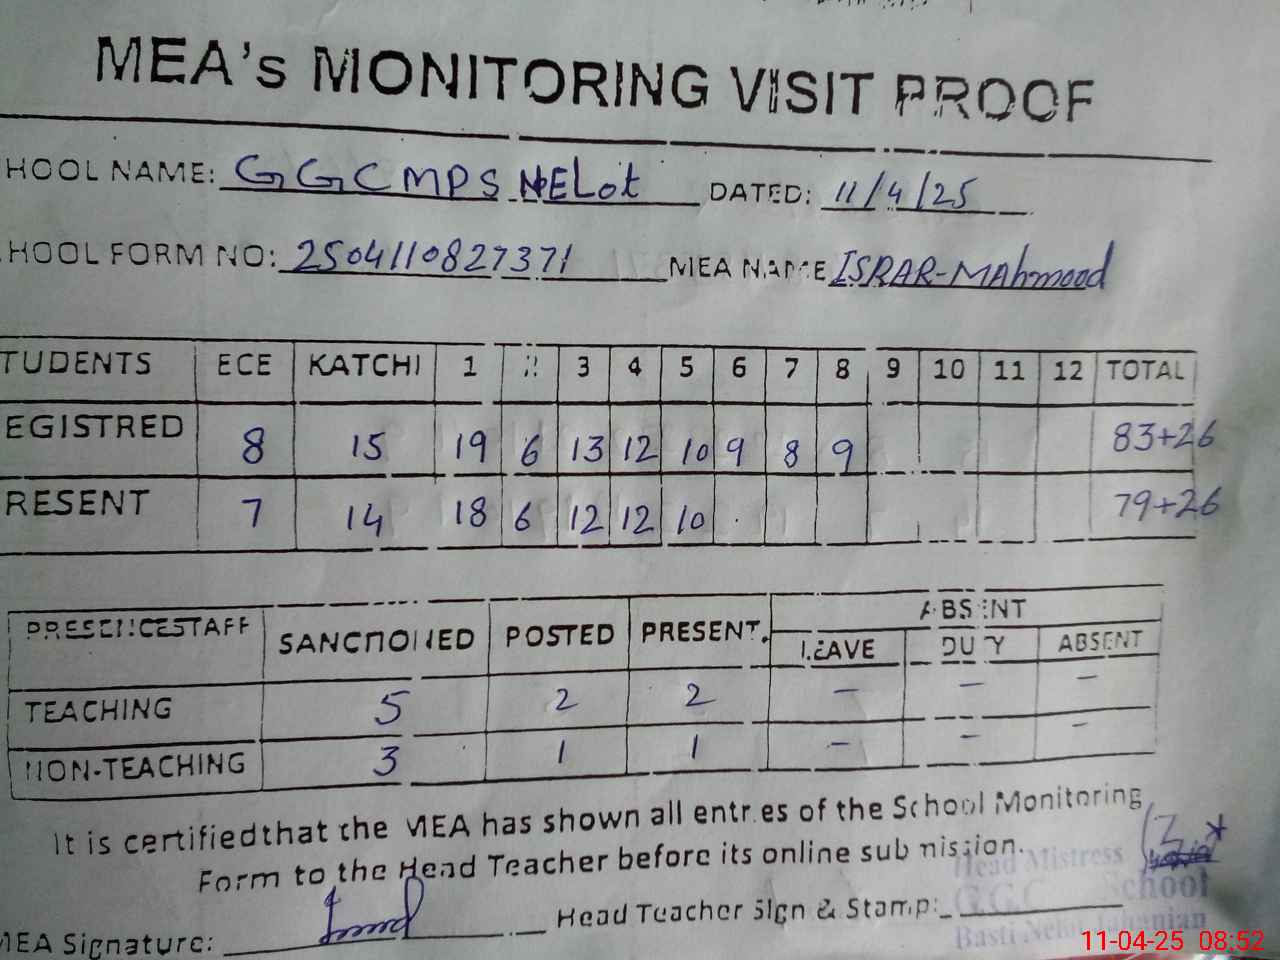 MEA's MONITORING VISIT PROOF
HOOL NAME: GGCMPS NELot DATED: 11/4/25
HOOL FORM NO: 2504110827371 MEA NAME ISRAR-MAhmood
TUDENTS ECE KATCHI 1 2 3 4 5 6 7 8 9 10 11 12 TOTAL
EGISTRED 8 15 19 6 13 12 10 9 8 9 83+26
RESENT 7 14 18 6 12 12 10 79+26
PRESENCESTAFF SANCTIONED POSTED PRESENT. ABSENT
LEAVE DUTY ABSENT
TEACHING 5 2 2 - - -
NON-TEACHING 3 1 1 - - -
It is certified that the MEA has shown all entries of the School Monitoring
Form to the Head Teacher before its online submission.
Head Mistress
MEA Signature: Head Teacher Sign & Stamp:
G.G.C School
Basti Nelot Jahanian
11-04-25 08:52